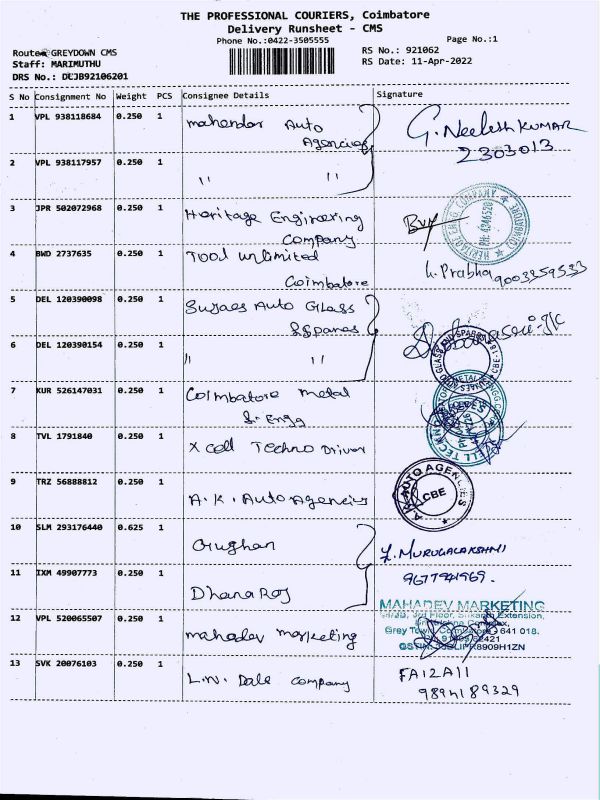 THE PROFESSIONAL COURIERS, Coimbatore
Delivery Runsheet - CMS
Phone No.:0422-3505555
Page No.:1
Route: GREYDOWN CMS
RS No.: 921062
Staff: MARIMUTHU
RS Date: 11-Apr-2022
DRS No.: DEJB92106201
S No Consignment No Weight PCS Consignee Details Signature
1 VPL 938118684 0.250 1 Mahendar Auto
Agencies
G. Neelesh KUMAR
2303013
2 VPL 938117957 0.250 1 " "
3 JPR 502072968 0.250 1 Heritage Engineering
Company
4 BWD 2737635 0.250 1 Tool unlimited
Coimbatore
Prabha 9003359533
5 DEL 120390098 0.250 1 Auto Glass
& Spares
6 DEL 120390154 0.250 1 " "
7 KUR 526147031 0.250 1 Coimbatore Metal
& Engg
8 TVL 1791840 0.250 1 X cell Techno Driver
9 TRZ 56888812 0.250 1 A.K. Auto Agencies
A.K. AUTO AGENCIES
CBE
10 SLM 293176440 0.625 1
MURUGALAKSHMI
11 IXM 49907773 0.250 1 Dhana Roj
12 VPL 520065507 0.250 1 mahadev marketing
MAHADEV MARKETING
3rd Floor, Extension,
Krishna Complex,
Grey Town, Coimbatore - 641 018.
13 SVK 20076103 0.250 1 L.N. Dale company
FAIZAll
9894189329